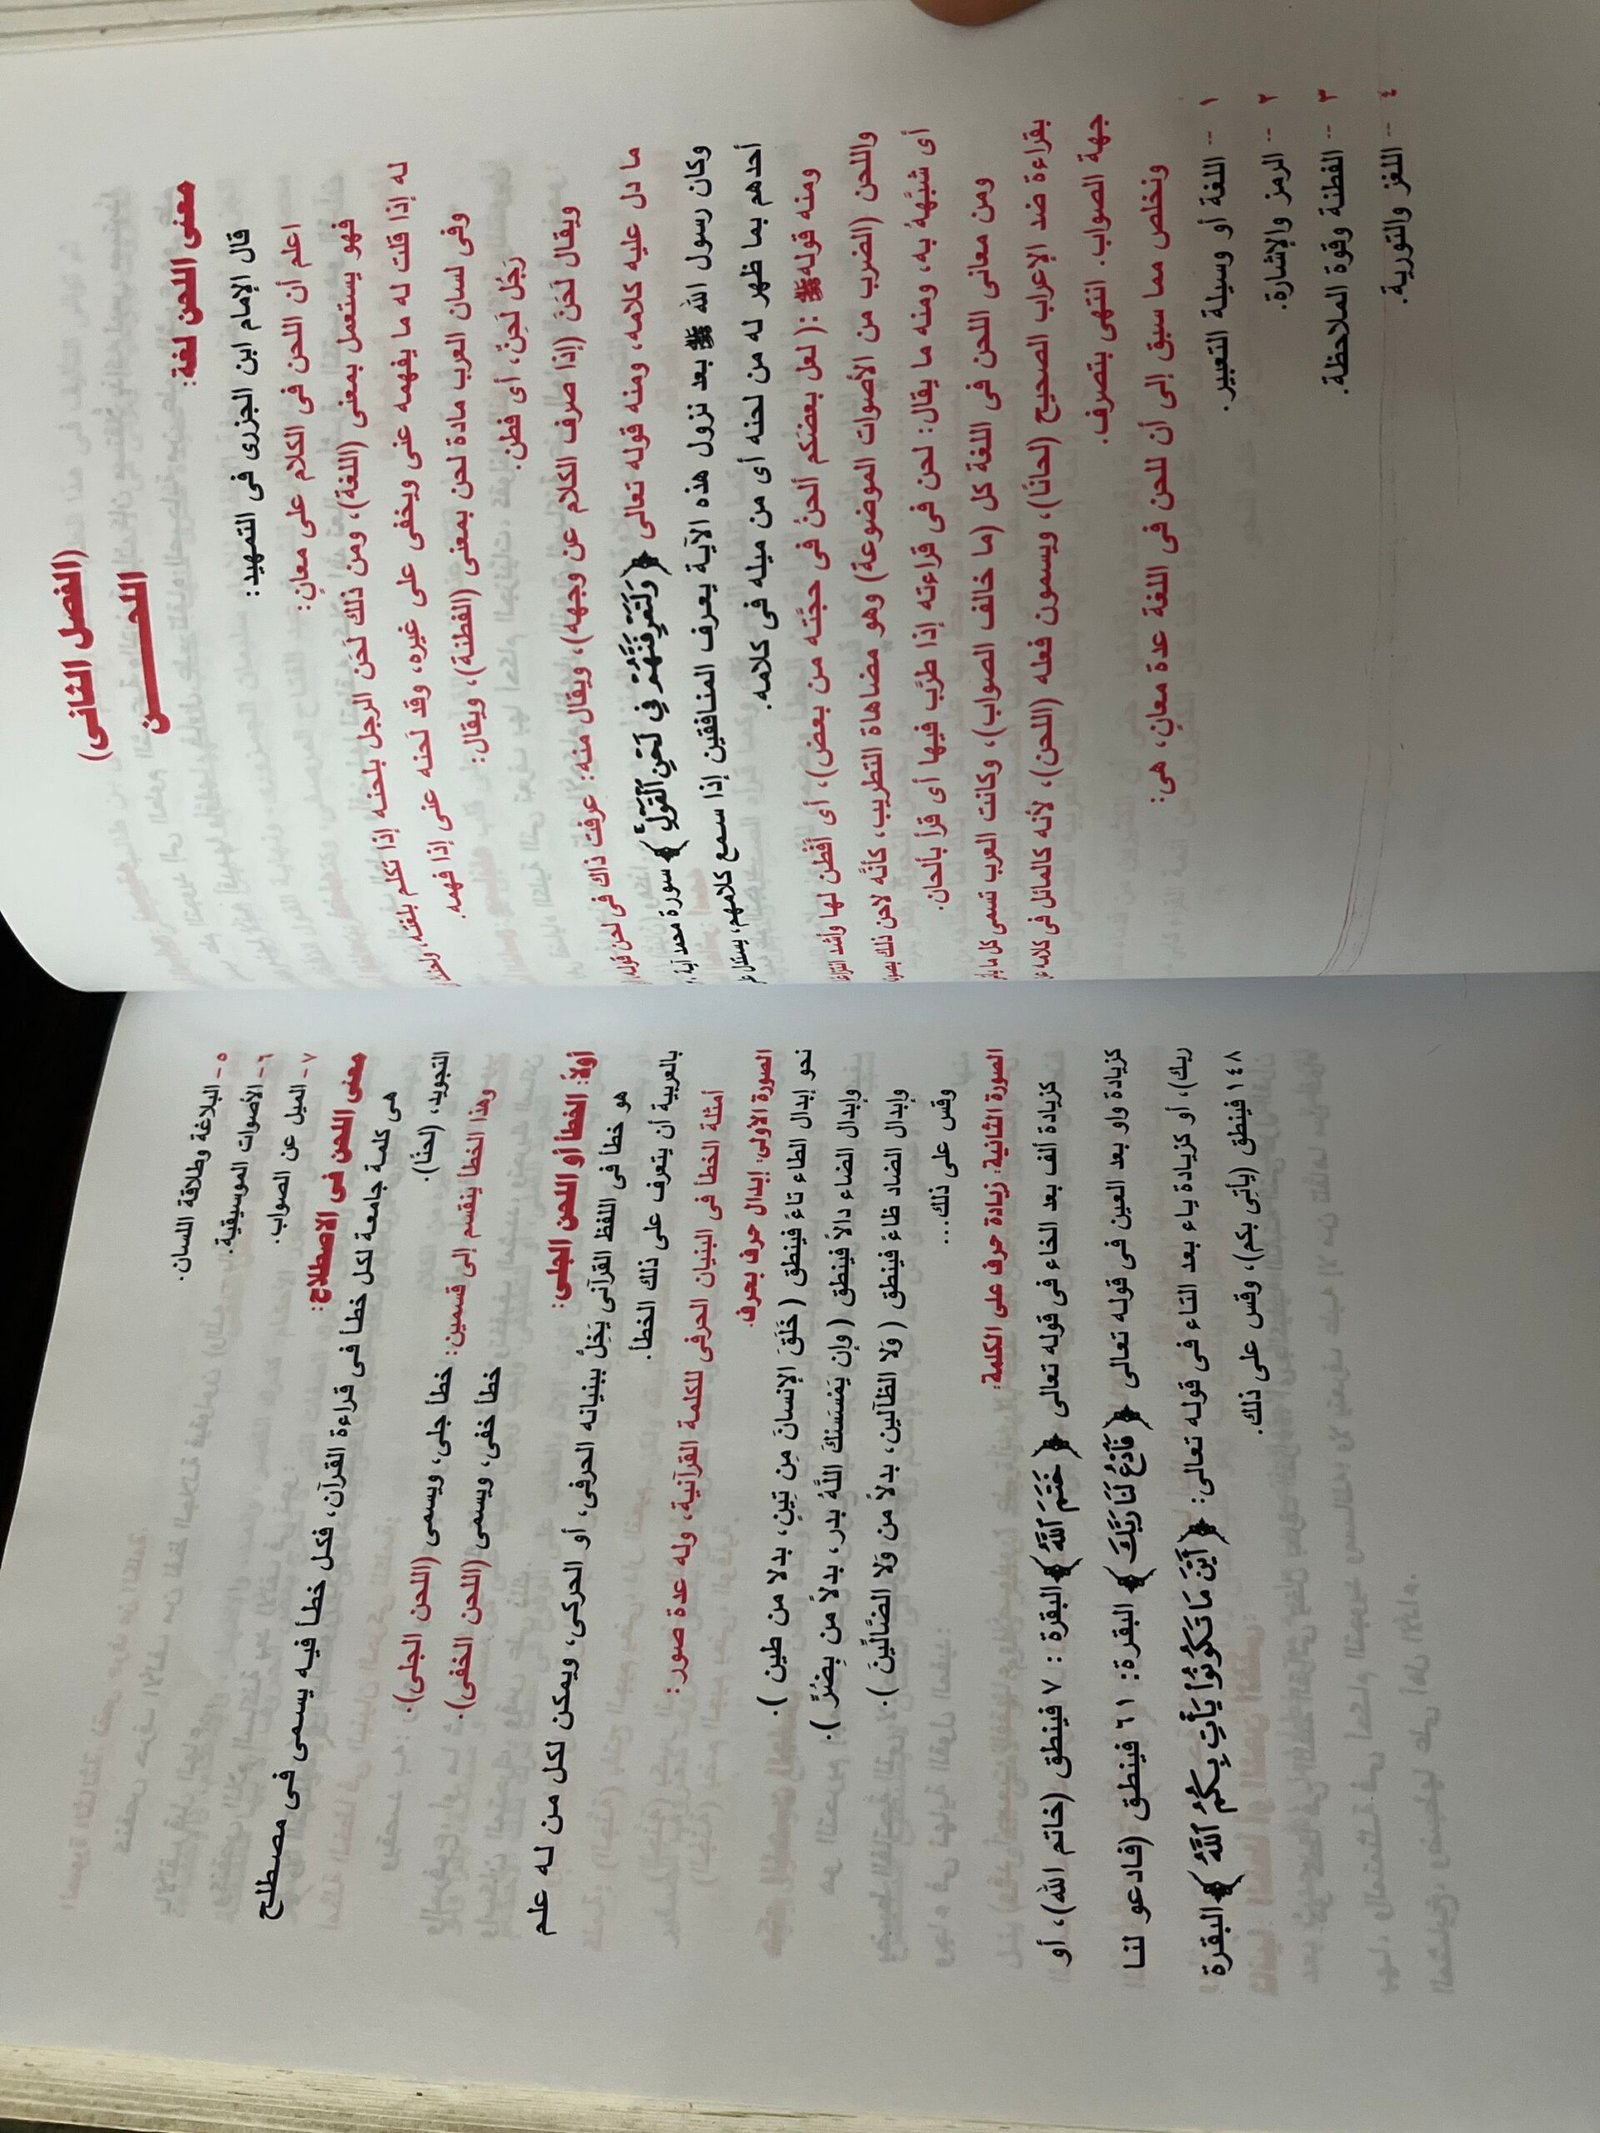 (الفصل الثانى)
اللحـــــن
معنى اللحن لغة:
قال الإمام ابن الجزرى فى التمهيد:
اعلم أن اللحن فى الكلام على معانٍ:
فهو يستعمل بمعنى (اللغة)، ومن ذلك لَحَن الرجل بلحنه إذا تكلم بلغته،
له إذا قلت له ما يفهمه عنى ويخفى على غيره، وقد لَحنه عنى إذا فهمه.
وفى لسان العرب مادة لحن بمعنى (الفطنة)، ويقال:
رَجُل لَحِنٌ، أى فطن.
ويقال لحَنَ (إذا صرف الكلام عن وجهه)، ويقال منه: عرفت ذاك فى لحن قوله
ما دل عليه كلامه، ومنه قوله تعالى ﴿ وَلَتَعْرِفَنَّهُمْ فِي لَحْنِ ٱلْقَوْلِ ﴾ سورة محمد آية
وكان رسول الله ﷺ بعد نزول هذه الآية يعرف المنافقين إذا سمع كلامهم، يستدل
أحدهم بما ظهر له من لحنه أى من ميله فى كلامه.
ومنه قوله ﷺ : ( لعل بعضَكم ألحنُ فى حجَّته من بعض)، أى أفطن لها وأشد
واللحن (الضرب من الأصوات الموضوعة) وهو مضاهاة التطريب، كأنَّه لاحن ذلك
أى شبَّهَهُ به، ومنه ما يقال: لحن فى قراءته إذا طرَّب فيها أى قرأ بألحان.
ومن معانى اللحن فى اللغة كل (ما خالف الصواب)، وكانت العرب تسمى كل
بقراءة ضد الإعراب الصحيح (لحانًا)، ويسمون فعله (اللحن)، لأنه كالمائل فى كلامه
جهة الصواب. انتهى بتصرف.
ونخلص مما سبق إلى أن للحن فى اللغة عدة معانٍ، هى:
١ -- اللغة أو وسيلة التعبير.
٢ -- الرمز والإشارة.
٣ -- الفطنة وقوة الملاحظة.
٤ -- اللغز والتورية.
٥ – البلاغة وطلاقة اللسان.
٦ – الأصوات الموسيقية.
٧ – الميل عن الصواب.
معنى اللحن فى الاصطلاح:
هى كلمة جامعة لكل خطأ فى قراءة القرآن، فكل خطأ فيه يسمى فى مصطلح
التجويد، (لحنًا).
وهذا الخطأ ينقسم إلى قسمين: خطأ جلى، ويسمى (اللحن الجلى).
خطأ خفى، ويسمى (اللحن الخفى).
أولاً: الخطأ أو اللحن الجلى:
هو خطأ فى اللفظ القرآنى يَخِلُّ ببنيانه الحرفى، أو الحركى، ويمكن لكل من له علم
بالعربية أن يتعرف على ذلك الخطأ.
أمثلة الخطأ فى البنيان الحرفى للكلمة القرآنية، وله عدة صور:
الصورة الأولى: إبدال حرف بحرف.
نحو إبدال الطاء تاءً فينطق ( خَلَقَ الإنسانَ مِن تِينٍ، بدلا من طين ).
وإبدال الضاء دالاً فينطق ( وإن يَمْسَسْكَ اللَّهُ بدر، بدلاً من بِضُرٍّ ).
وإبدال الضاد ظاءً فينطق ( وَلا الظالين، بدلاً من وَلا الضَّالِّينَ ).
وقس على ذلك...
الصورة الثانية: زيادة حرف على الكلمة:
كزيادة ألف بعد الخاء فى قوله تعالى ﴿ خَتَمَ ٱللَّهُ ﴾ البقرة : ٧ فينطق (خاتم الله)، أو
كزيادة واو بعد العين فى قوله تعالى ﴿ فَٱدْعُ لَنَا رَبَّكَ ﴾ البقرة: ٦١ فينطق (فادعو لنا
ربك)، أو كزيادة ياء بعد التاء فى قوله تعالى: ﴿ أَيْنَ مَا تَكُونُوا۟ يَأْتِ بِكُمُ ٱللَّهُ ﴾ البقرة
١٤٨ فينطق (يأتى بكم)، وقس على ذلك.